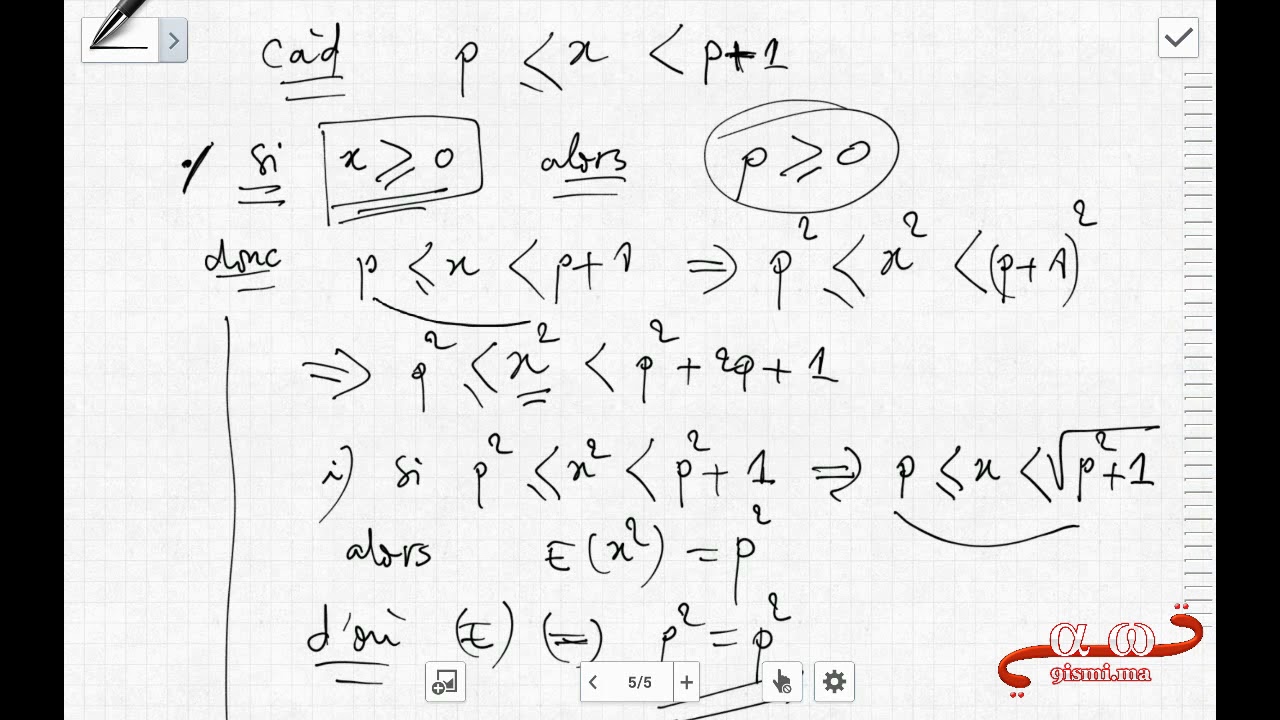 càd p ≤ x < p+1
•/ si x ≥ 0 alors p ≥ 0
donc p ≤ x < p+1 ⇒ p² ≤ x² < (p+1)²
⇒ p² ≤ x² < p² + 2p + 1
i) si p² ≤ x² < p² + 1 ⇒ p ≤ x < √(p²+1)
alors E(x²) = p²
d'où (E) (=) p² = p²
5/5
α ω
gismi.ma